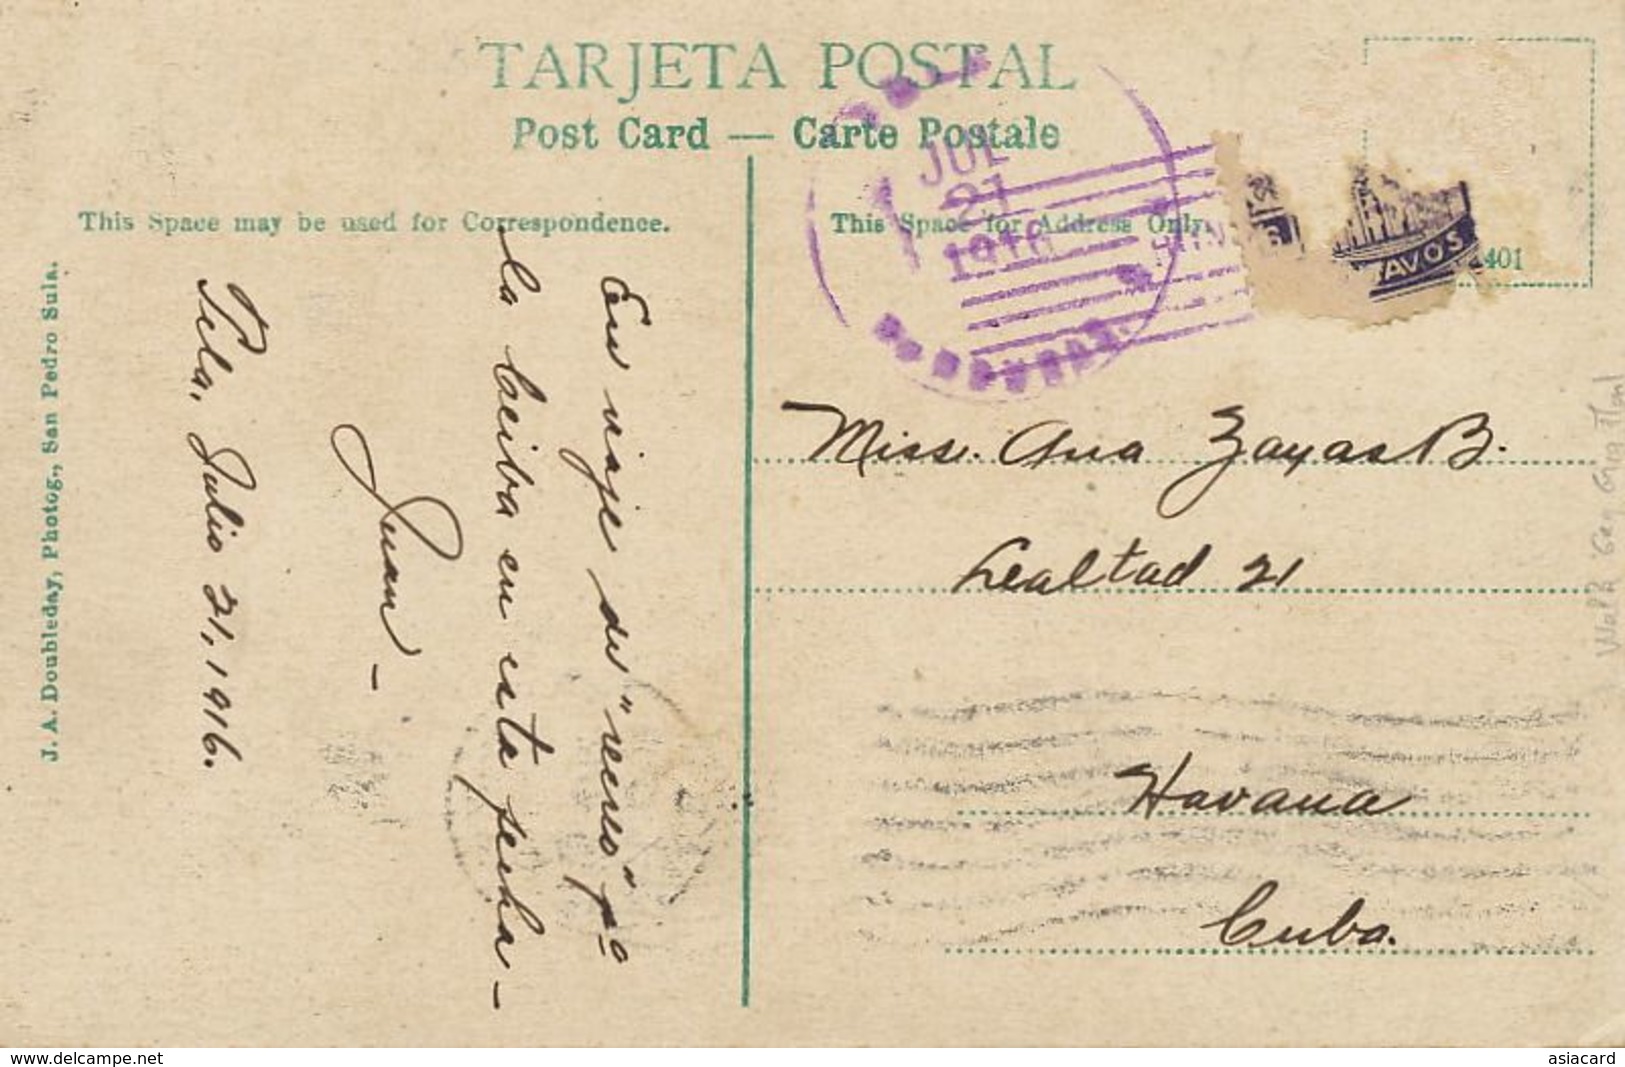 TARJETA POSTAL
Post Card — Carte Postale
This Space may be used for Correspondence.
This Space for Address Only.
JUL
21
1916
AVOS
401
J. A. Doubleday, Photog., San Pedro Sula.
En viaje de "recreo" pª
la Ceiba en esta fecha —
Juan —
Tela, Julio 21, 1916.
Miss. Ana Zayas B.
Lealtad 21
Havana
Cuba.
www.delcampe.net
asiacard